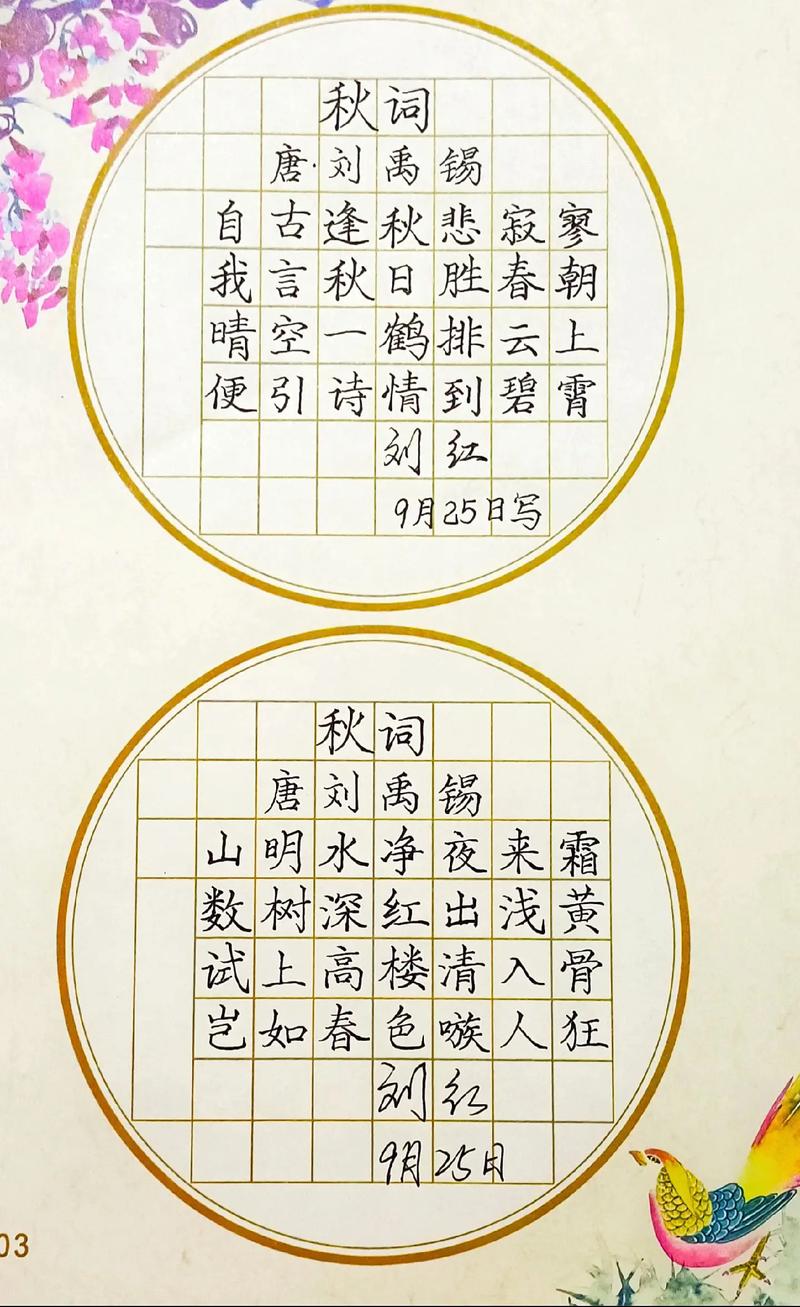 秋词
唐·刘禹锡
自古逢秋悲寂寥
我言秋日胜春朝
晴空一鹤排云上
便引诗情到碧霄
刘红
9月25日写
秋词
唐刘禹锡
山明水净夜来霜
数树深红出浅黄
试上高楼清入骨
岂如春色嗾人狂
刘红
9月25日
03